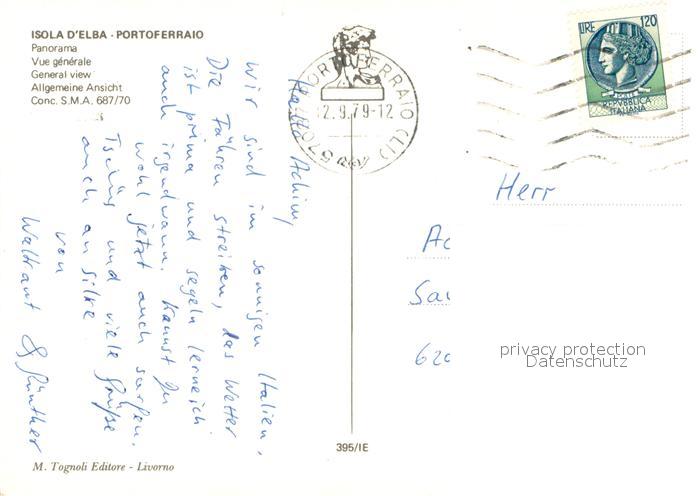 ISOLA D'ELBA - PORTOFERRAIO
Panorama
Vue générale
General view
Allgemeine Ansicht
Conc. S.M.A. 687/70
Hallo Achim,
wir sind im sonnigen Italien.
Die Fähren streiken, das Wetter
ist prima und segeln lerne ich
auch irgendwann. Kannst Du
wohl jetzt auch surfen.
Tschüs und viele Grüße
auch an Silke
von
Waltraut & Günther
PORTOFERRAIO (LI)
12.9.79-12
57037
LIRE 120
POSTE
REPVBBLICA
ITALIANA
Herr
Ac
Sau
620
privacy protection
Datenschutz
395/IE
M. Tognoli Editore - Livorno